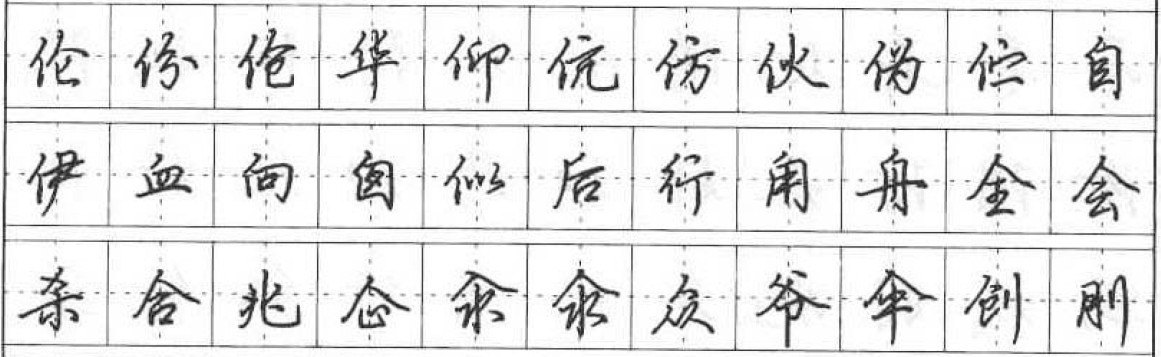 伦份伧华仰伉仿伙伪伫自
伊血向囟似后行甪舟全会
杀合兆企汆氽众爷伞创刖